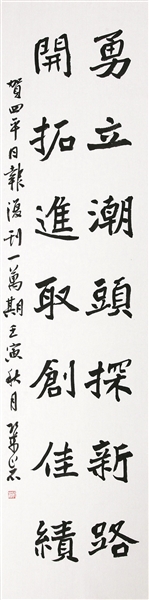 勇立潮頭探新路
開拓進取創佳績
賀四平日報復刊一萬期壬寅秋月